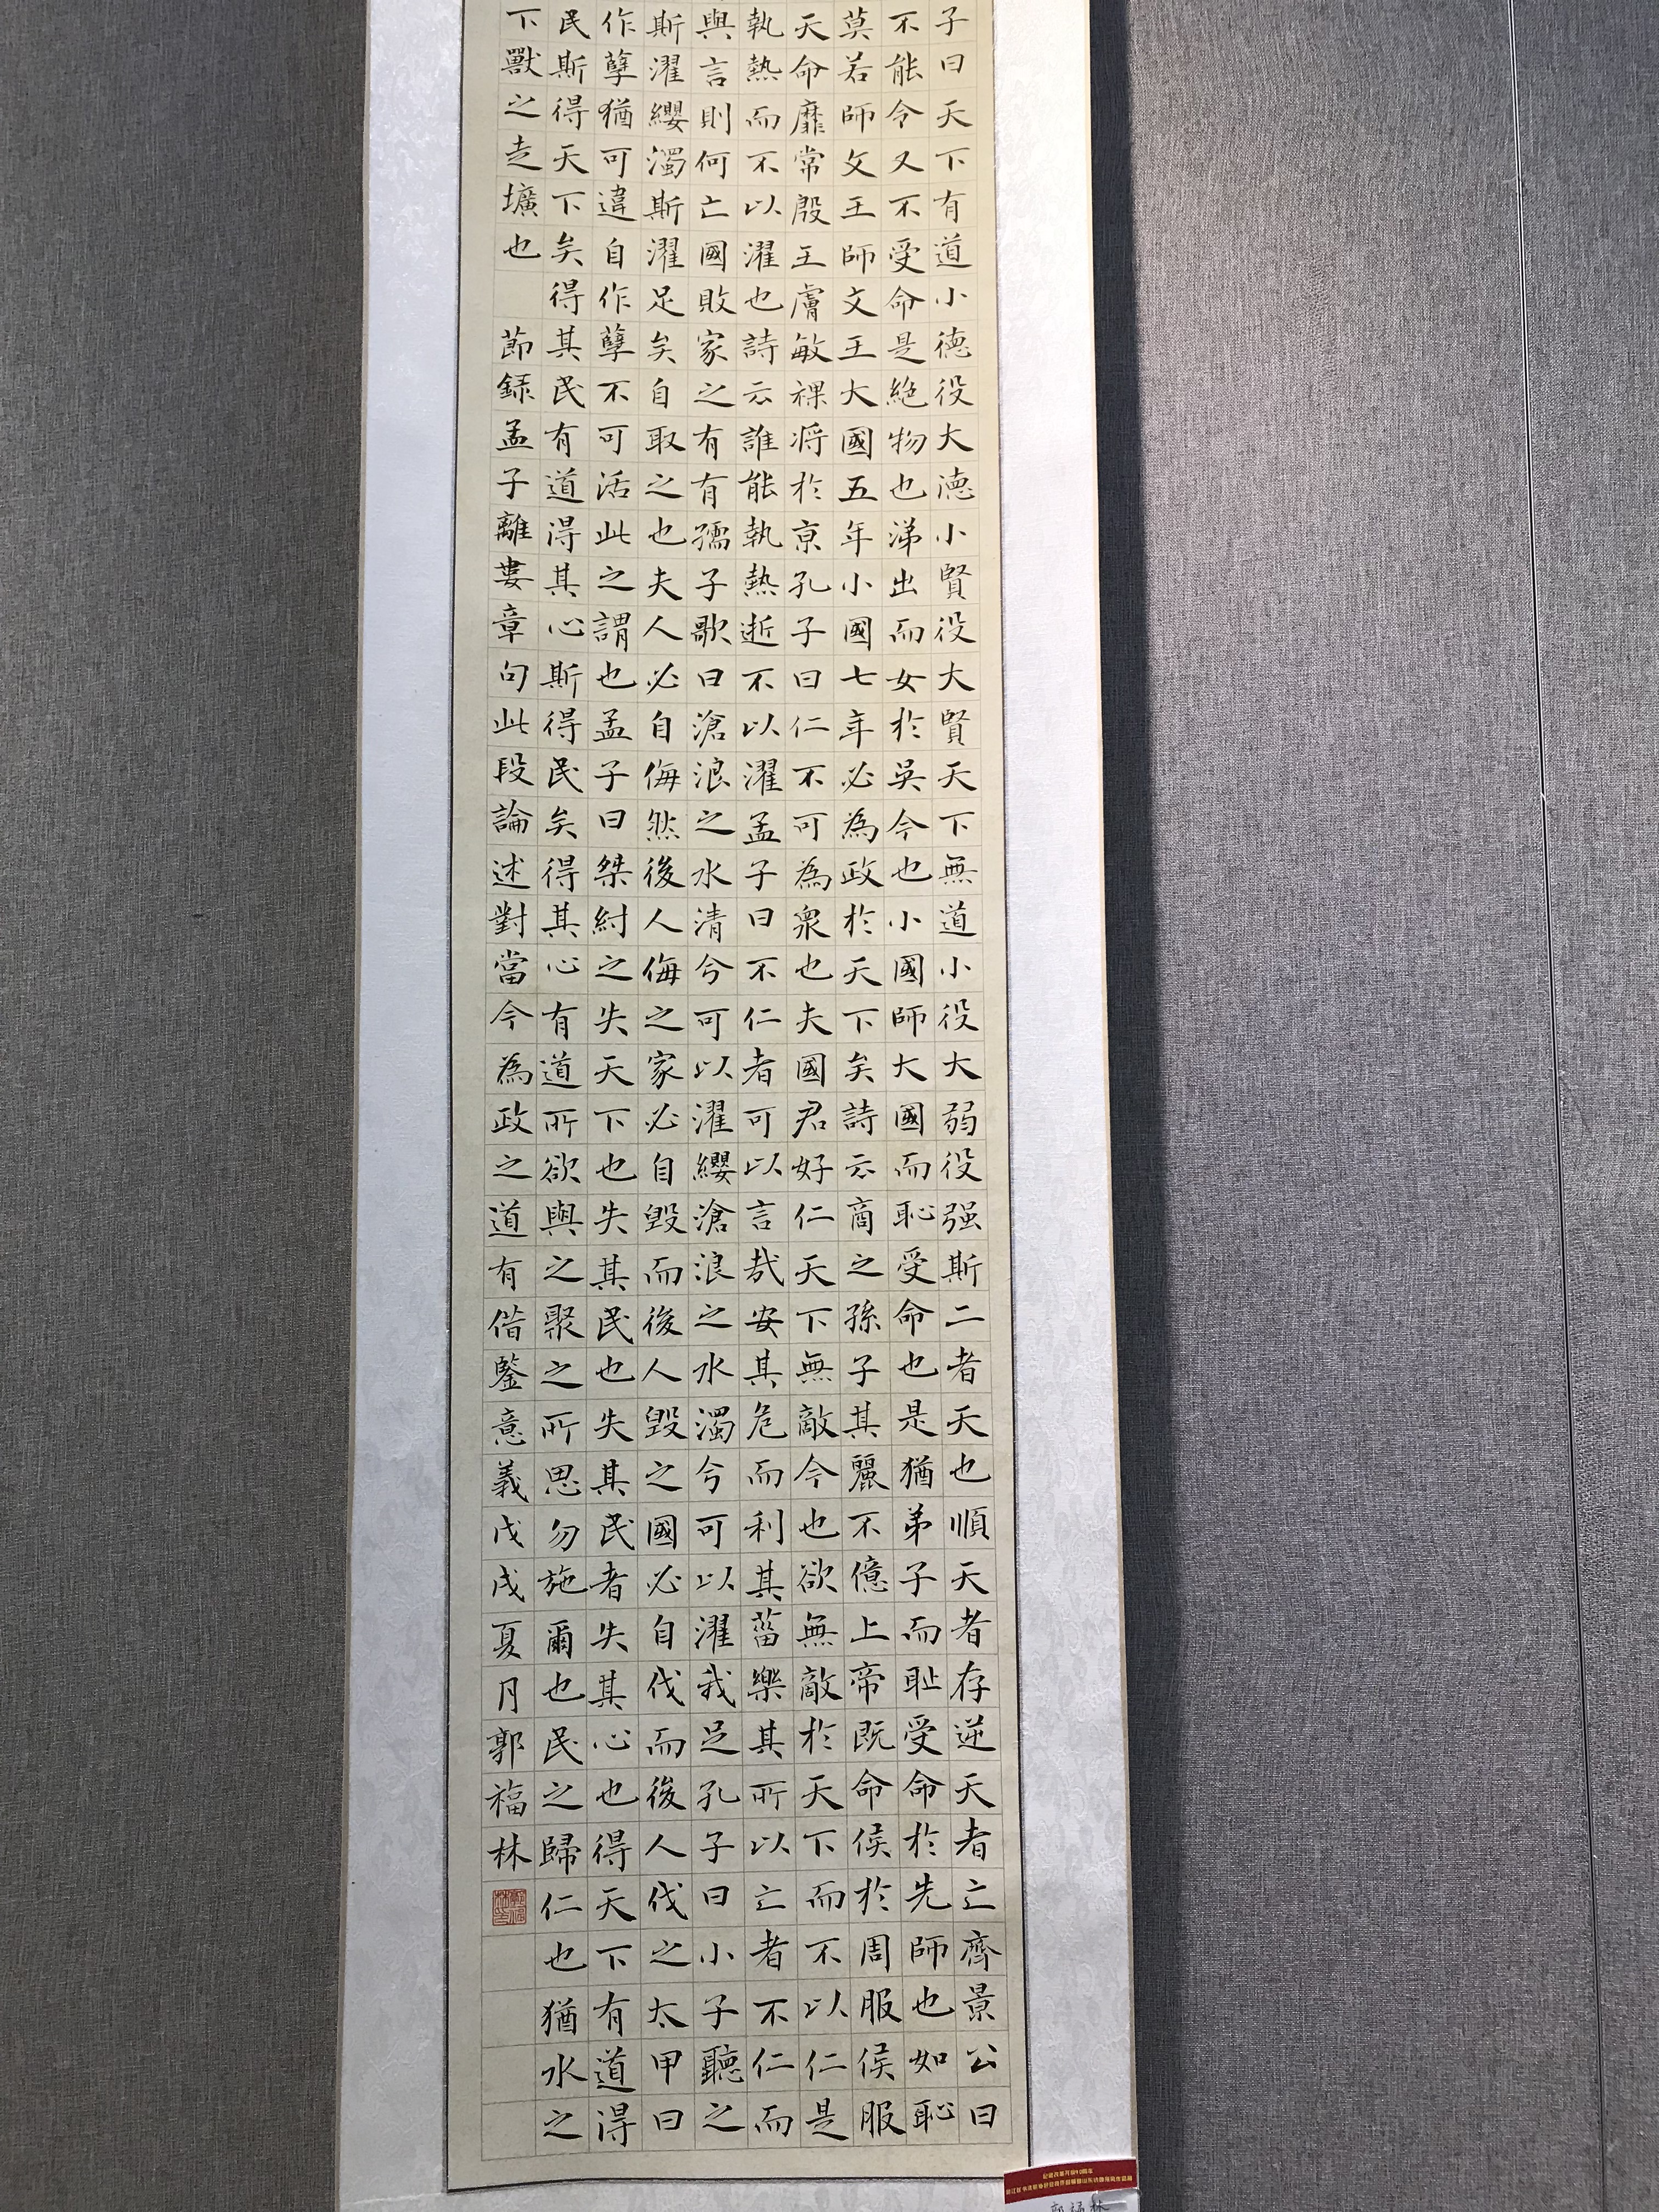 子曰天下有道小德役大德小賢役大賢天下無道小役大弱役强斯二者天也順天者存逆天者亡齊景公曰
不能令又不受命是絕物也涕出而女於吳今也小國師大國而恥受命也是猶弟子而耻受命於先師也如恥
莫若師文王師文王大國五年小國七年必為政於天下矣詩云商之孫子其麗不億上帝既命侯於周服侯服
天命靡常殷王膚敏祼将於京孔子曰仁不可為衆也夫國君好仁天下無敵今也欲無敵於天下而不以仁是
執熱而不以濯也詩云誰能執熱逝不以濯孟子曰不仁者可以言哉安其危而利其菑樂其所以亡者不仁而
與言則何亡國敗家之有有孺子歌曰滄浪之水清兮可以濯纓滄浪之水濁兮可以濯我足孔子曰小子聽之
斯濯纓濁斯濯足矣自取之也夫人必自侮然後人侮之家必自毀而後人毀之國必自伐而後人伐之太甲曰
作孽猶可違自作孽不可活此之謂也孟子曰桀紂之失天下也失其民也失其民者失其心也得天下有道得
民斯得天下矣得其民有道得其心斯得民矣得其心有道所欲與之聚之所思勿施爾也民之歸仁也猶水之
下獸之走壙也 節録孟子離婁章句此段論述對當今為政之道有借鑒意義戊戌夏月郭福林